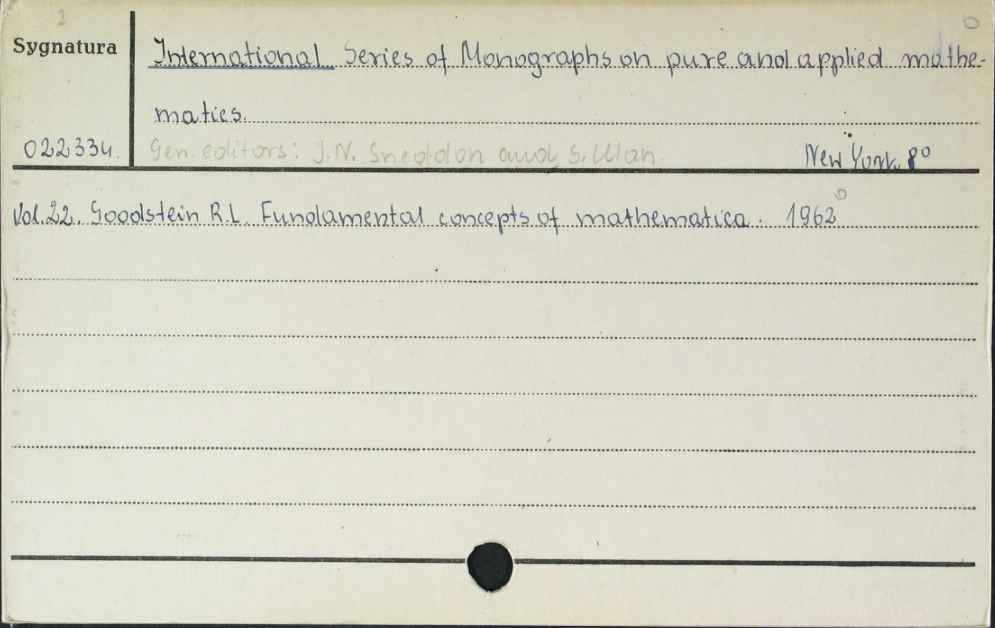 Sygnatura
International Series of Monographs on pure and applied mathe-
matics.
022334.
Gen. editors: J.N. Sneddon and S. Ulan
New York. 8°
Vol. 22. Goodstein R.L. Fundamental concepts of mathematica. 1962